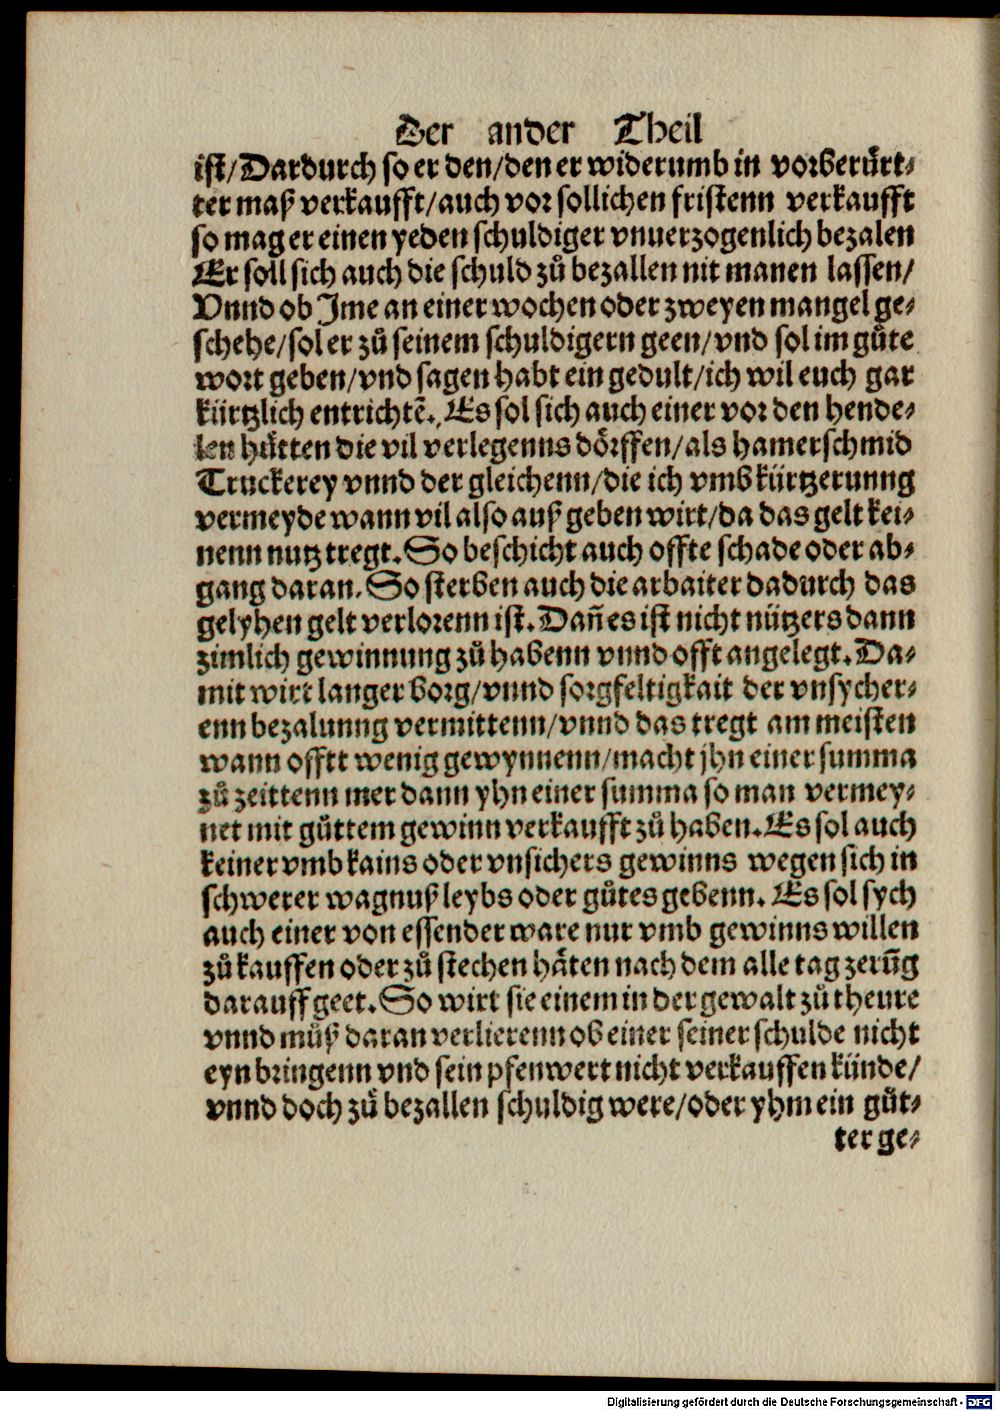 Der ander Theil
ist/Dardurch so er den/den er widerumb in vorberürt⸗
ter maß verkaufft/auch vor sollichen fristenn verkaufft
so mag er einen yeden schuldiger vnuerzogenlich bezalen
Er soll sich auch die schuld zů bezallen nit manen lassen/
Vnnd ob Jme an einer wochen oder zweyen mangel ge⸗
schehe/sol er zů seinem schuldigern geen/vnd sol im gůte
wort geben/vnd sagen habt ein gedult/ich wil euch gar
kürtzlich entrichtē. Es sol sich auch einer vor den hende⸗
len hůtten die vil verlegenns dörffen/als hamerschmid
Truckerey vnnd der gleichenn/die ich vmb kürtzerunng
vermeyde wann vil also auß geben wirt/da das gelt kei⸗
nenn nutz tregt. So beschicht auch offte schade oder ab⸗
gang daran. So sterben auch die arbaiter dadurch das
gelyhen gelt verlorenn ist. Dañ es ist nicht nützers dann
zimlich gewinnung zů habenn vnnd offt angelegt. Da⸗
mit wirt langer borg/vnnd sorgfeltigkait der vnsycher⸗
enn bezalunng vermittenn/vnnd das tregt am meisten
wann offtt wenig gewynnenn/macht jhn einer summa
zů zeittenn mer dann yhn einer summa so man vermey⸗
net mit gůttem gewinn verkaufft zů haben. Es sol auch
keiner vmb kains oder vnsichers gewinns wegen sich in
schwerer wagnuß leybs oder gůtes gebenn. Es sol sych
auch einer von essender ware nur vmb gewinns willen
zů kauffen oder zů stechen häten nach dem alle tag zerūg
darauff geet. So wirt sie einem in der gewalt zů theure
vnnd můß daran verlierenn ob einer seiner schulde nicht
eyn bringenn vnd sein pfenwert nicht verkauffen künde/
vnnd doch zů bezallen schuldig were/oder yhm ein gůt⸗
ter ge⸗
Digitalisierung gefördert durch die Deutsche Forschungsgemeinschaft - DFG